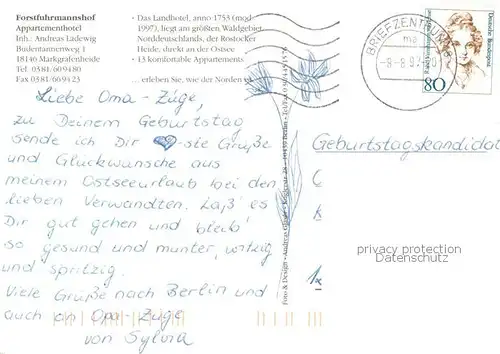 Forstfuhrmannshof
Appartementhotel
Inh.: Andreas Ladewig
Budentannenweg 1
18146 Markgrafenheide
Tel 0381/609480
Fax 0381/669423
• Das Landhotel, anno 1753 (mod.
1997), liegt am größten Waldgebiet
Norddeutschlands, der Rostocker
Heide, direkt an der Ostsee
• 13 komfortable Appartements
... erleben Sie, wie der Norden
BRIEFZENTRUM
-8-8.9
Deutsche Bundespost
80
Liebe Oma-Züge,
zu Deinem Geburtstag
sende ich Dir ♥-ste Grüße
und Glückwünsche aus
meinem Ostseeurlaub bei den
lieben Verwandten. Laß' es
Dir gut gehen und bleib'
so gesund und munter, witzig
und spritzig.
Viele Grüße nach Berlin und
auch an Opa-Züge
von Sylvia
Foto & Design • Andreas
Geburtstagskandidat
privacy protection
Datenschutz